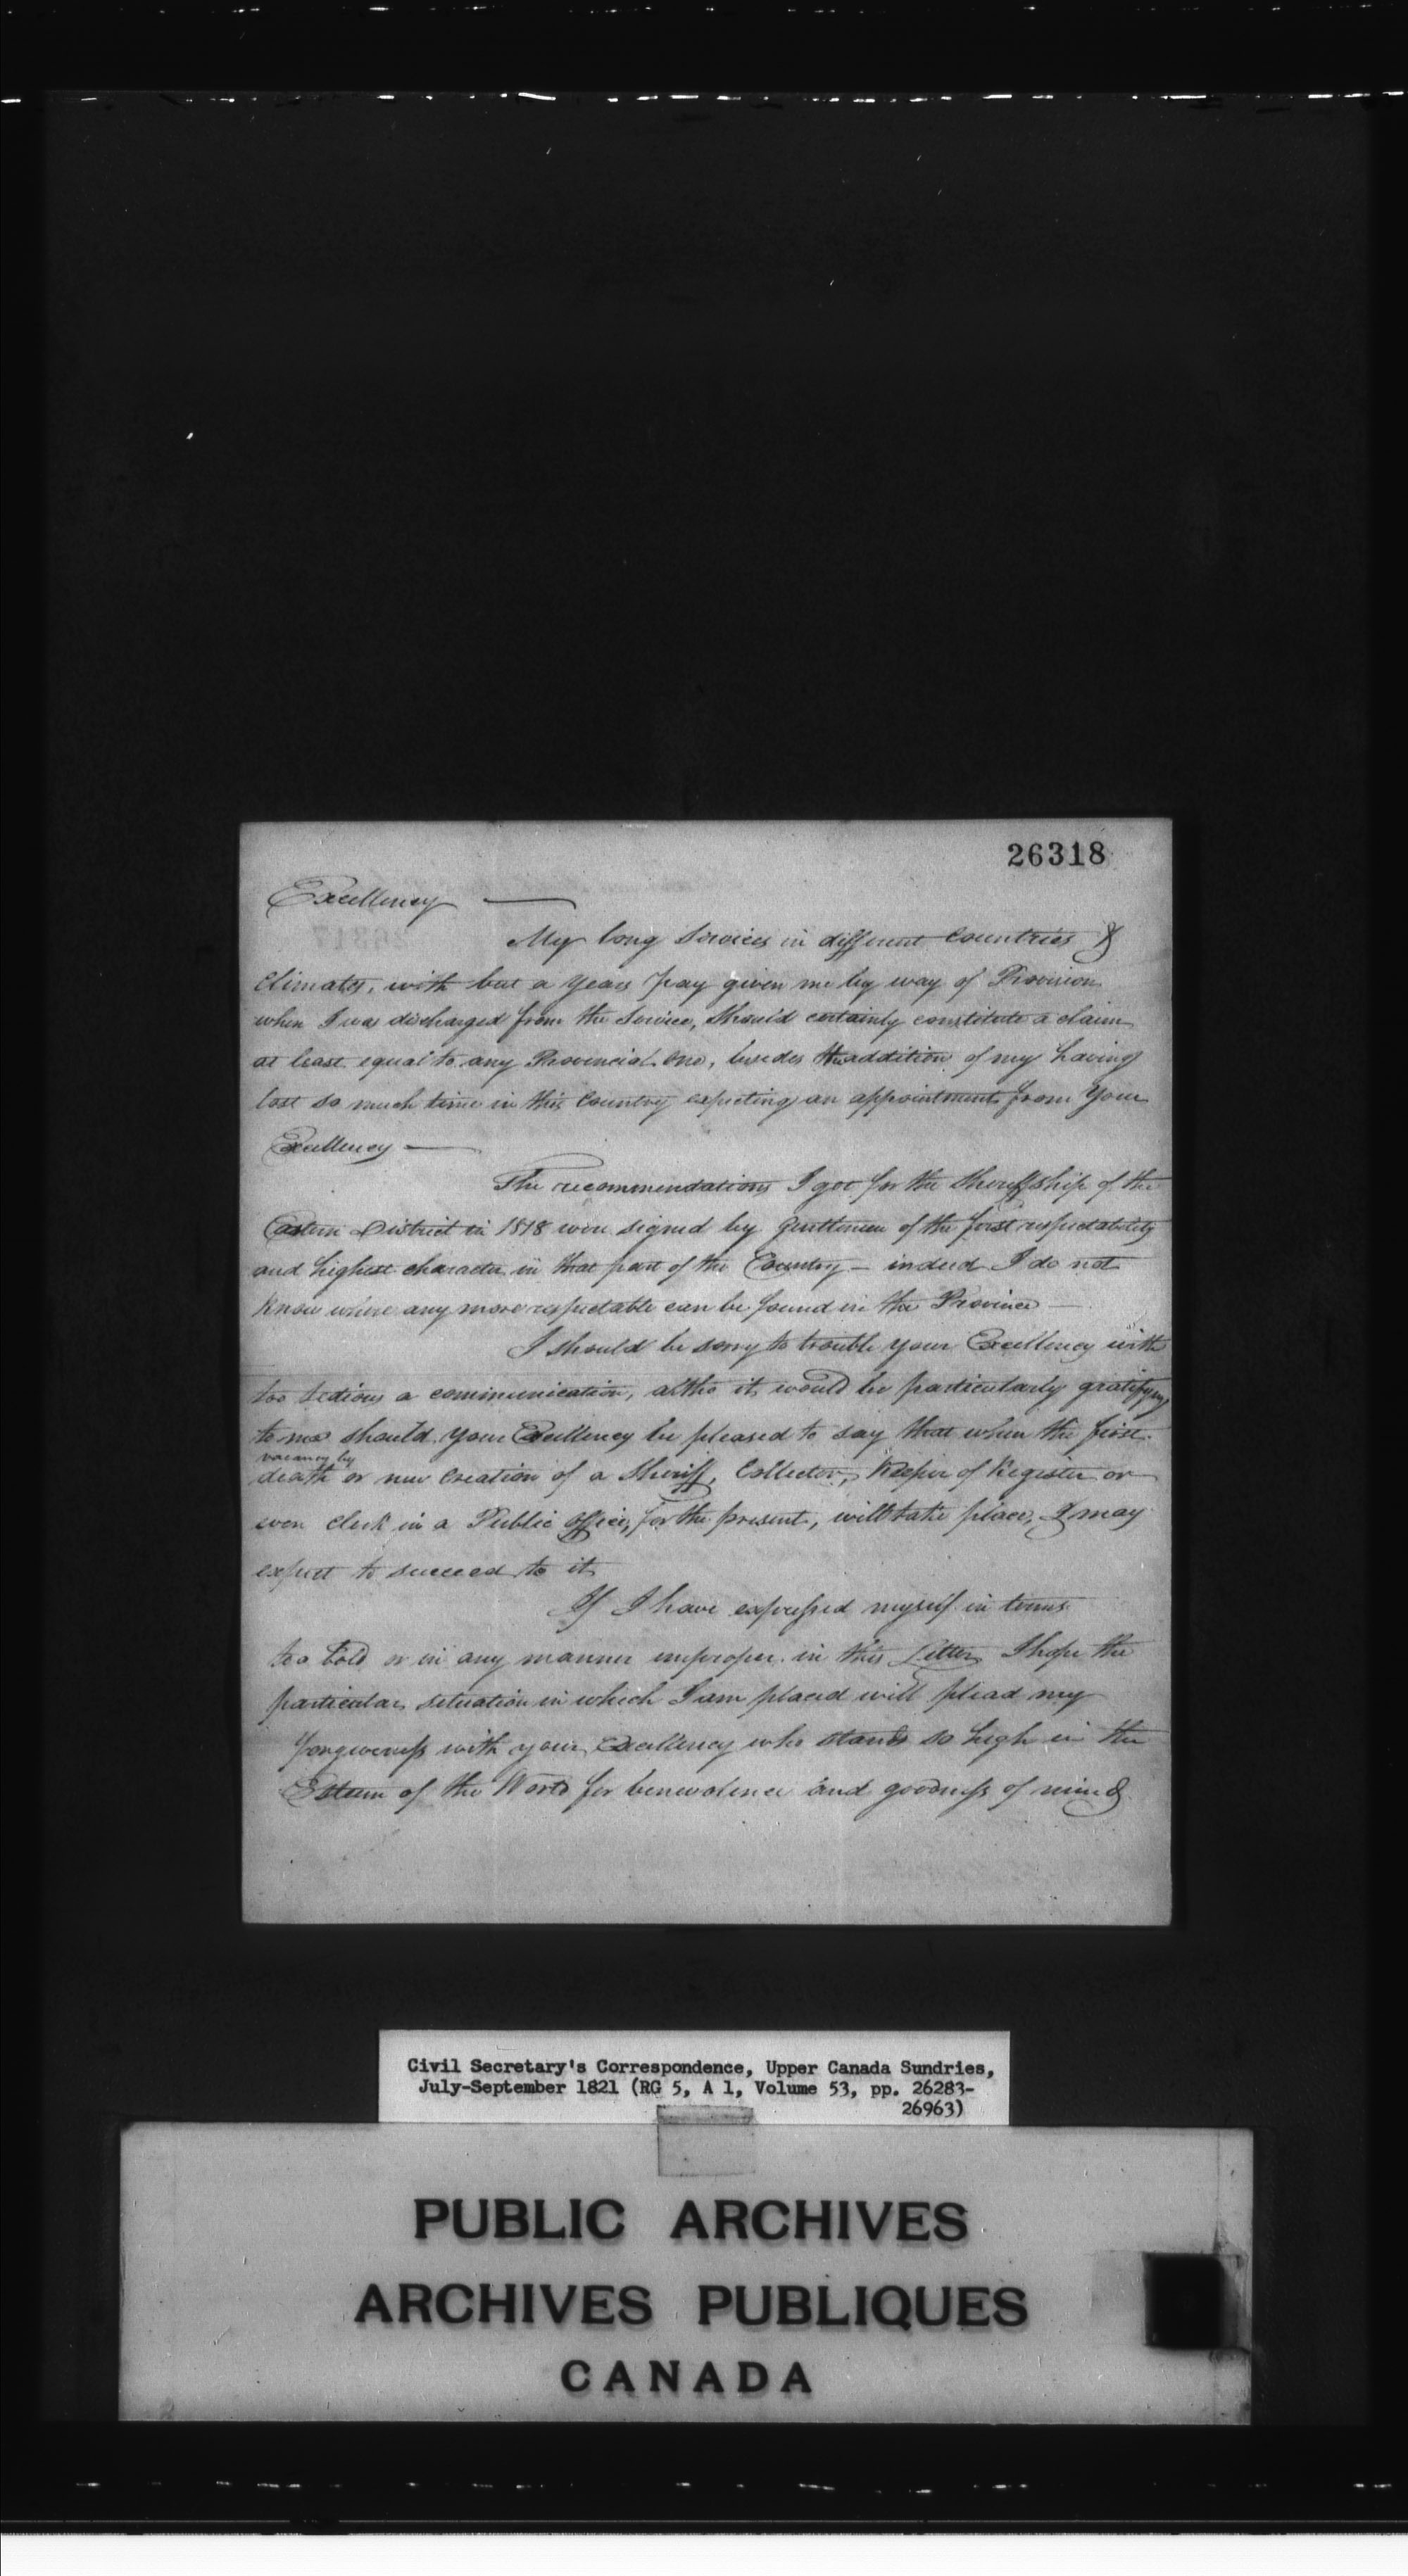 26318
Excellency —
My long Services in different Countries &
Climates, with but a years pay given me by way of Provision
when I was discharged from the Service, should certainly constitute a claim
at least equal to any Provincial One, besides the addition of my having
lost so much time in this Country expecting an appointment from Your
Excellency —
The recommendations I got for the Sheriffship of the
Eastern District in 1818 were signed by Gentlemen of the first respectability
and highest character in that part of the Country — indeed I do not
know where any more respectable can be found in the Province —
I should be sorry to trouble your Excellency with
too tedious a communication, altho it would be particularly gratifying
to me should your Excellency be pleased to say that when the first
vacancy by
death or new Creation of a Sheriff, Collector, Keeper of Register or
even clerk in a Public Office, for the present, will take place, I may
expect to succeed to it
If I have expressed myself in terms
too bold or in any manner improper in this Letter I hope the
particular situation in which I am placed will plead my
forgiveness with your Excellency who stands so high in the
Esteem of the World for benevolence and goodness of mind
Civil Secretary's Correspondence, Upper Canada Sundries,
July-September 1821 (RG 5, A 1, Volume 53, pp. 26283-
26963)
PUBLIC ARCHIVES
ARCHIVES PUBLIQUES
CANADA